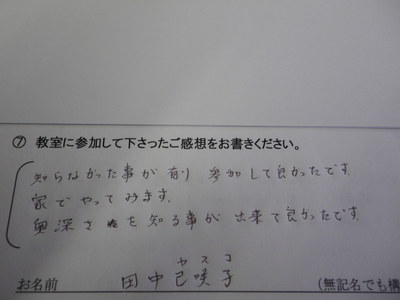 ⑦ 教室に参加して下さったご感想をお書きください。
知らなかった事が有り 参加して良かったです。
家でやってみます。
奥深さを知る事が出来て良かったです。
ヤスコ
お名前 田中己咲子 (無記名でも構